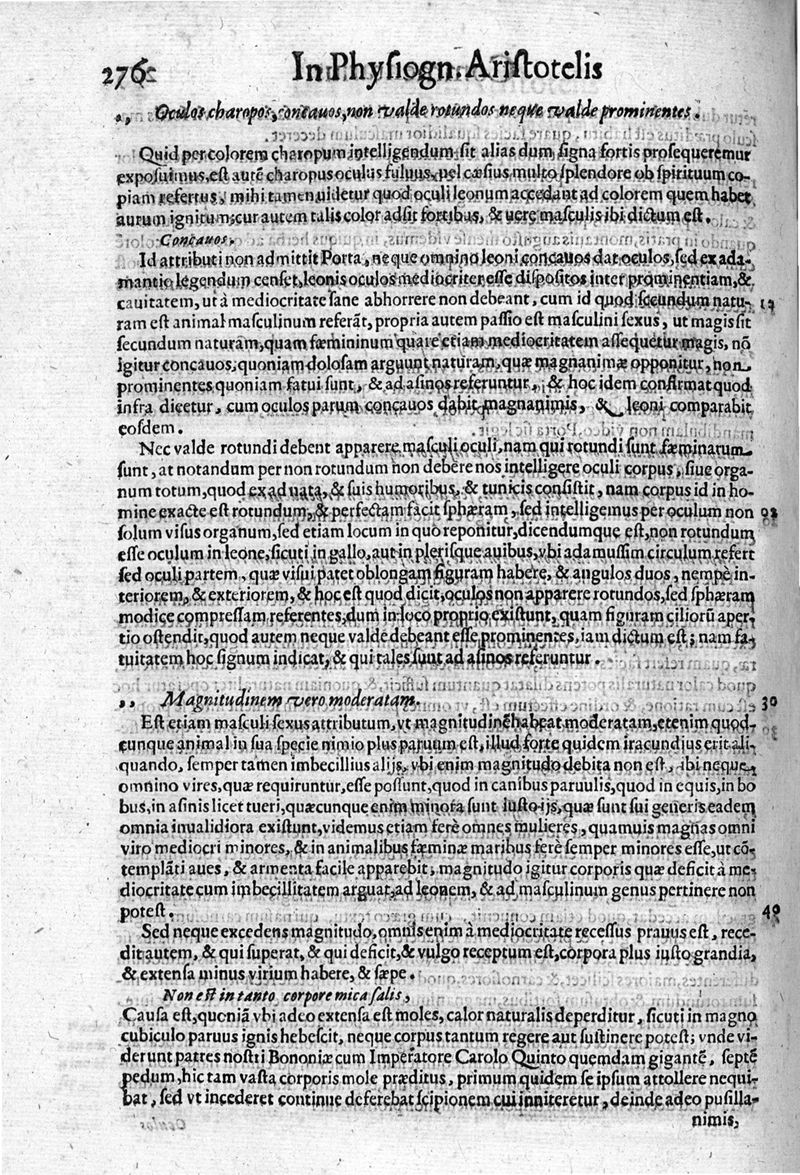 276
In Physiogn. Aristotelis
,, Oculos charopos, concauos, non valde rotundos neque valde prominentes.
Quid per colorem charopum intelligendum sit alias dum signa fortis prosequeremur
exposuimus, est autē charopus oculus fuluus, vel cæsius multo splendore ob spirituum co-
piam refertus, mihi tamen uidetur quod oculi leonum accedant ad colorem quem habet
aurum ignitum; cur autem talis color adsit fortibus, & uere masculis ibi dictum est.
Concauos.
Id attributi non admittit Porta, neque omnino leoni concauos dat oculos, sed ex ada-
mantio legendum censet, leonis oculos mediocriter esse dispositos inter prominentiam, &
cauitatem, ut à mediocritate sane abhorrere non debeant, cum id quod secundum natu-
ram est animal masculinum referāt, propria autem passio est masculini sexus, ut magis sit
secundum naturam, quam fæmininum quare etiam mediocritatem assequetur magis, nō
igitur concauos, quoniam dolosam arguunt naturam, quæ magnanimæ opponitur, non
prominentes quoniam fatui sunt, & ad asinos referuntur, & hoc idem confirmat quod
infra dicetur, cum oculos parum concauos dabit magnanimis, & leoni comparabit
eosdem.
Nec valde rotundi debent apparere masculi oculi, nam qui rotundi sunt fæminarum
sunt, at notandum per non rotundum non debere nos intelligere oculi corpus, siue orga-
num totum, quod ex ad uata, & suis humoribus, & tunicis consistit, nam corpus id in ho-
mine exacte est rotundum, & perfectam facit sphæram, sed intelligemus per oculum non
solum visus organum, sed etiam locum in quò reponitur, dicendumque est, non rotundum
esse oculum in leone, sicuti in gallo, aut in plerisque auibus, vbi adamussim circulum refert
sed oculi partem, quæ visui patet oblongam figuram habere, & angulos duos, nempe in-
teriorem, & exteriorem, & hoc est quod dicit, oculos non apparere rotundos, sed sphæram
modice compressam referentes, dum in loco proprio existunt, quam figuram ciliorū aper-
tio ostendit, quod autem neque valde debeant esse prominentes, iam dictum est; nam fa-
tuitatem hoc signum indicat, & qui tales sunt ad asinos referuntur.
,, Magnitudinem vero moderatam.
30
Est etiam masculi sexus attributum, vt magnitudinē habeat moderatam, etenim quod-
cunque animal in sua specie nimio plus paruum est, illud forte quidem iracundius erit ali-
quando, semper tamen imbecillius alijs, vbi enim magnitudo debita non est, ibi neque
omnino vires, quæ requiruntur, esse possunt, quod in canibus paruulis, quod in equis, in bo
bus, in asinis licet tueri, quæcunque enim minora sunt iusto ijs, quæ sunt sui generis eadem
omnia inualidiora existunt, videmus etiam ferè omnes mulieres, quamuis magnas omni
viro mediocri minores, & in animalibus fæminæ maribus ferè semper minores esse, ut cō-
templāti aues, & armenta facile apparebit, magnitudo igitur corporis quæ deficit à me-
diocritate cum imbecillitatem arguat, ad leonem, & ad masculinum genus pertinere non
potest.
40
Sed neque excedens magnitudo, omnis enim à mediocritate recessus prauus est, rece-
dit autem, & qui superat, & qui deficit, & vulgo receptum est, corpora plus iusto grandia,
& extensa minus virium habere, & sæpe.
Non est in tanto corpore mica salis,
Causa est, quoniā vbi adeo extensa est moles, calor naturalis deperditur, sicuti in magno
cubiculo paruus ignis hebescit, neque corpus tantum regere aut sustinere potest; vnde vi-
derunt patres nostri Bononiæ cum Imperatore Carolo Quinto quemdam gigantē, septē
pedum, hic tam vasta corporis mole præditus, primum quidem se ipsum attollere nequi-
bat, sed vt incederet continue deferebat scipionem cui inniteretur, deinde adeo pusilla-
nimis,